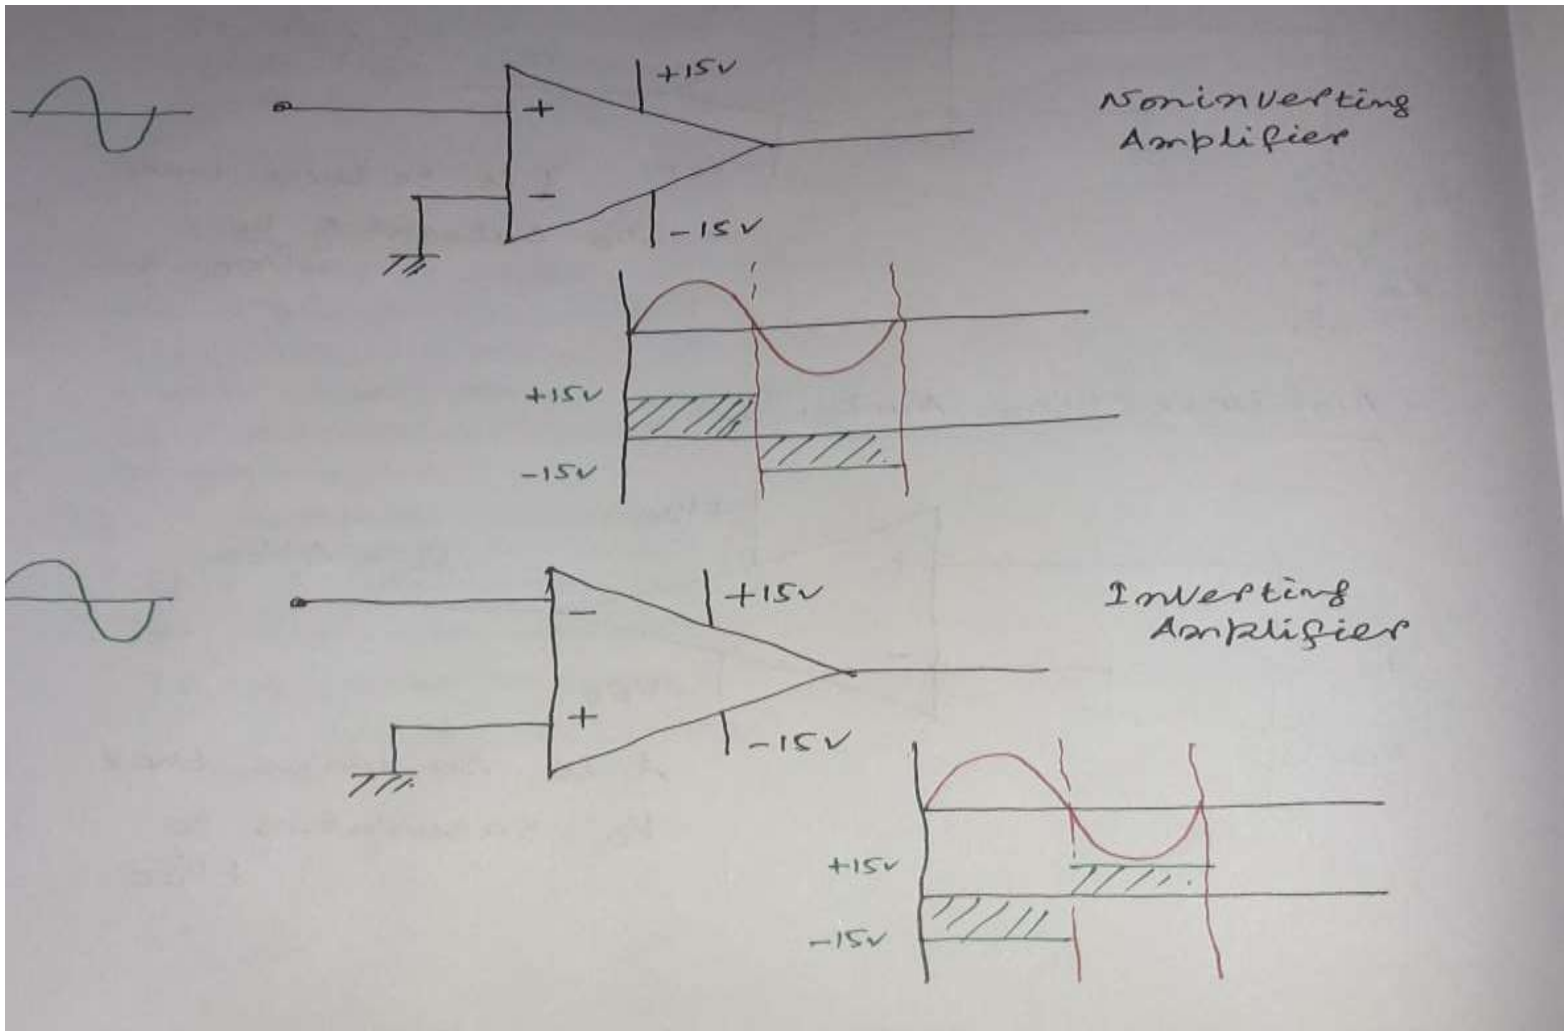 +15v
+
Noninverting
Amplifier
-
-15v
+15v
-15v
+15v
-
Inverting
Amplifier
+
-15v
+15v
-15v